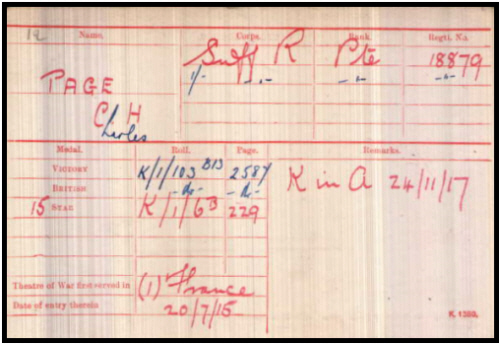 Name. Corps. Rank. Regtl. No.
Suff R Pte 18879
1/- -„- -„- -„-
PAGE
C H
harles
Medal. Roll. Page. Remarks.
VICTORY K/1/103 B13 2587
BRITISH -do- -do-
15 STAR K/1/6B 229
K in A 24/11/17
Theatre of War first served in (1) France
Date of entry therein 20/7/15
K. 1380.